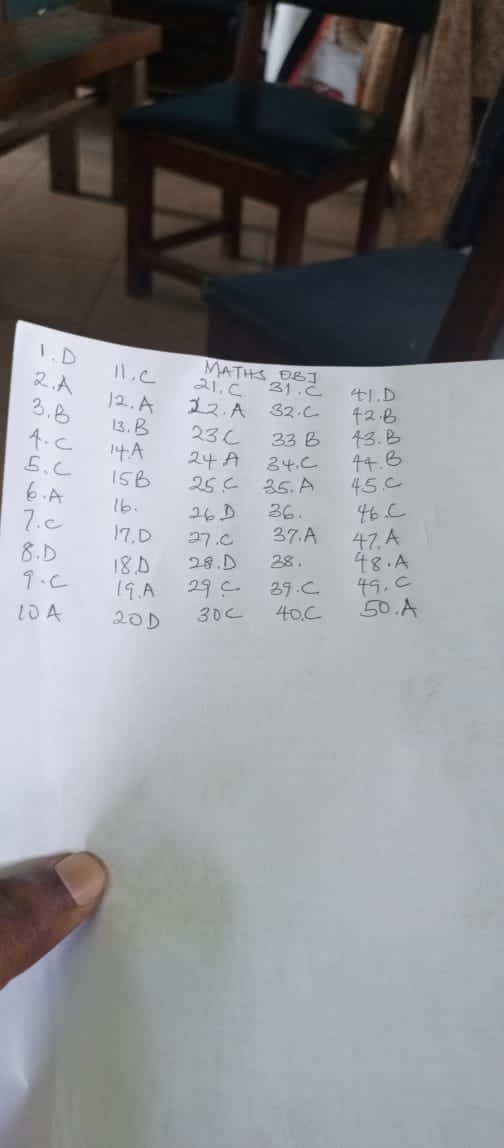 MATHS OBJ
1.D
2.A
3.B
4.C
5.C
6.A
7.C
8.D
9.C
10 A
11.C
12.A
13.B
14.A
15B
16.
17.D
18.D
19.A
20D
21.C
22.A
23C
24A
25.C
26D
27.C
28.D
29C
30C
31.C
32.C
33 B
34.C
35.A
36.
37.A
38.
39.C
40.C
41.D
42.B
43.B
44.B
45.C
46.C
47.A
48.A
49.C
50.A